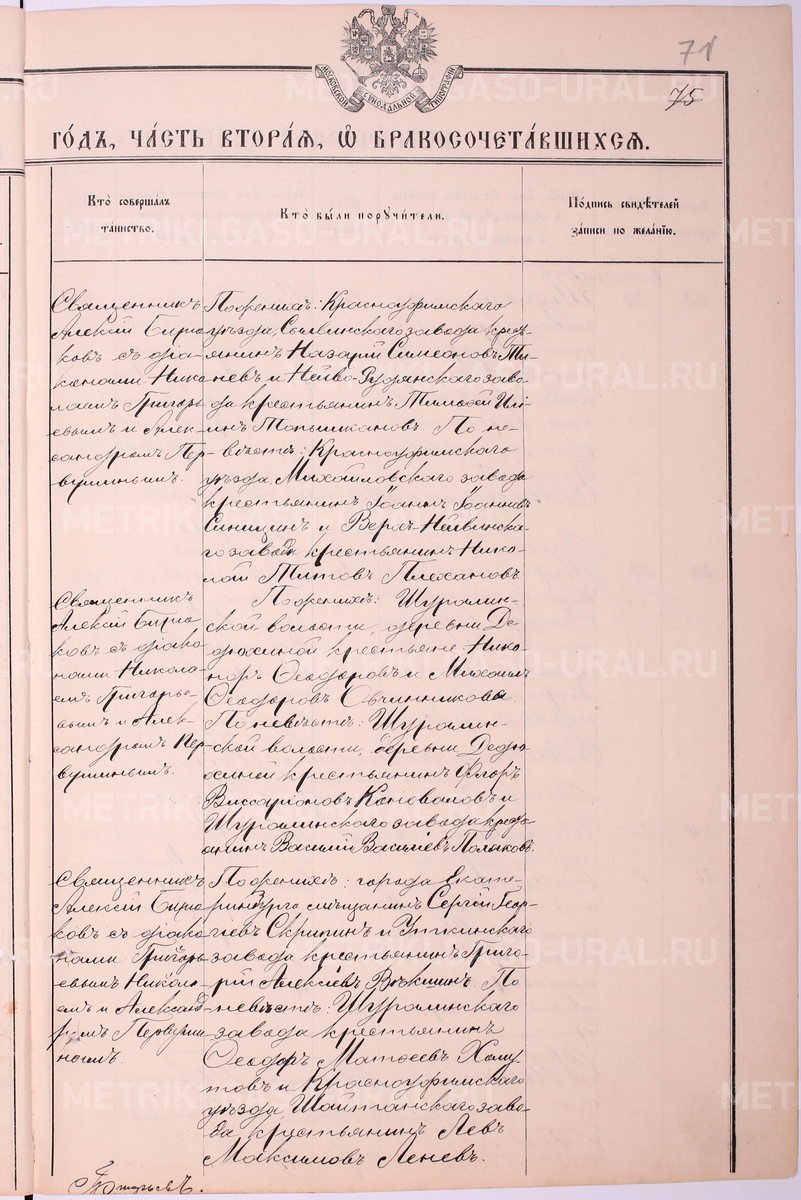 71
75
МОСКОВСКОЙ СѴНОДАЛЬНОЙ ТИПОГРАФІИ
ГО́ДЪ, ЧА́СТЬ ВТОРА́Я, Ѡ҆ БРАКОСОЧЕТА́ВШИХСЯ.
Кто̀ соверша́лъ
та́инство.
Кто̀ бы́ли порꙋчи́тели.
По́дпись свидѣ́телей
за́писи по жела́нїю.
Священникъ
Алексій Бирю-
ковъ съ діа-
конами Нико-
лаемъ Григорь-
евымъ и Алек-
сандромъ Пер-
вушинымъ.
По женихѣ: Красноуфимскаго
уѣзда, Сылвинскаго завода кресть-
янинъ Назарій Симеоновъ Ти-
невъ и Нейво-Рудянскаго заво-
да крестьянинъ Тимоѳей Иль-
инъ Топышкановъ. По не-
вѣстѣ: Красноуфимскаго
уѣзда, Михайловскаго завода
крестьянинъ Іоаннъ Іоанновъ
Синицинъ и Верхъ-Нейвинска-
го завода крестьянинъ Нико-
лай Титовъ Плехановъ.
Священникъ
Алексій Бирю-
ковъ съ діако-
нами Никола-
емъ Григорье-
вымъ и Алек-
сандромъ Пер-
вушинымъ.
По женихѣ: Шурамин-
ской волости, деревни Де-
дюхиной крестьяне: Ника-
норъ Ѳеодоровъ и Михаилъ
Ѳеодоровъ Овчинниковы.
По невѣстѣ: Шурамин-
ской волости, деревни Дедю-
хиной крестьянинъ Флоръ
Виссаріоновъ Коноваловъ и
Шуралинскаго завода кресть-
янинъ Василій Васильевъ Поляковъ.
Священникъ
Алексій Бирю-
ковъ съ діако-
нами Григорь-
евымъ Никола-
емъ и Александ-
ромъ Первуши-
нымъ.
По женихѣ: города Екате-
ринбурга мѣщанинъ Сергій Геор-
гіевъ Скрипинъ и Уткинскаго
завода крестьянинъ Григо-
рій Алексіевъ Вѣкшинъ. По
невѣстѣ: Шуралинскаго
завода крестьянинъ
Ѳеодоръ Матѳеевъ Хому-
товъ и Красноуфимскаго
уѣзда Шайтанскаго заво-
да крестьянинъ Левъ
Максимовъ Леневъ.
Григорьевъ.